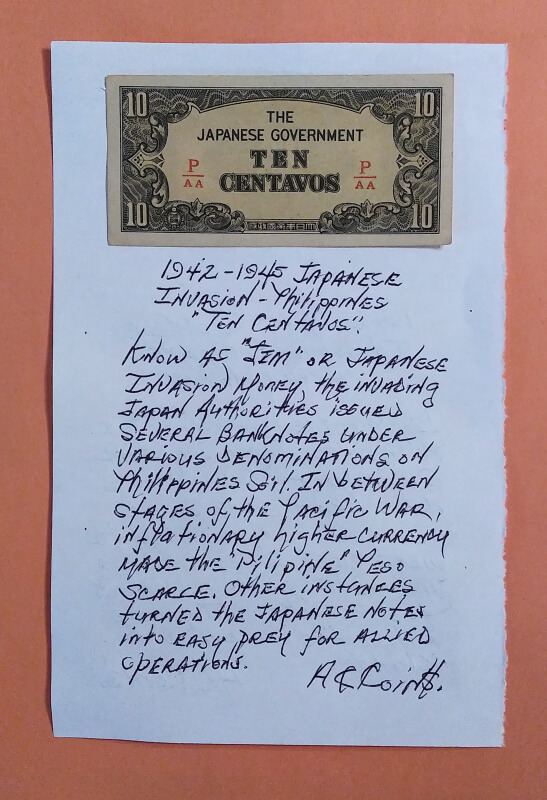 10 10
THE
JAPANESE GOVERNMENT
P TEN P
AA CENTAVOS AA
10 10
1942-1945 JAPANESE
INVASION - Philippines
"TEN CENTAVOS".
KNOW AS "JIM" OR JAPANESE
INVASION MONEY, the INVADING
JAPAN AUTHORITIES ISSUED
SEVERAL BANKNOTES UNDER
VARIOUS DENOMINATIONS ON
Philippines Soil. IN between
stages of the Pacific WAR,
inflationary higher currency
MADE the "Pilipine" Peso
SCARCE. Other instances
turned the JAPANESE Notes
into EASY prey for ALLIED
operations.
A&Coin$.